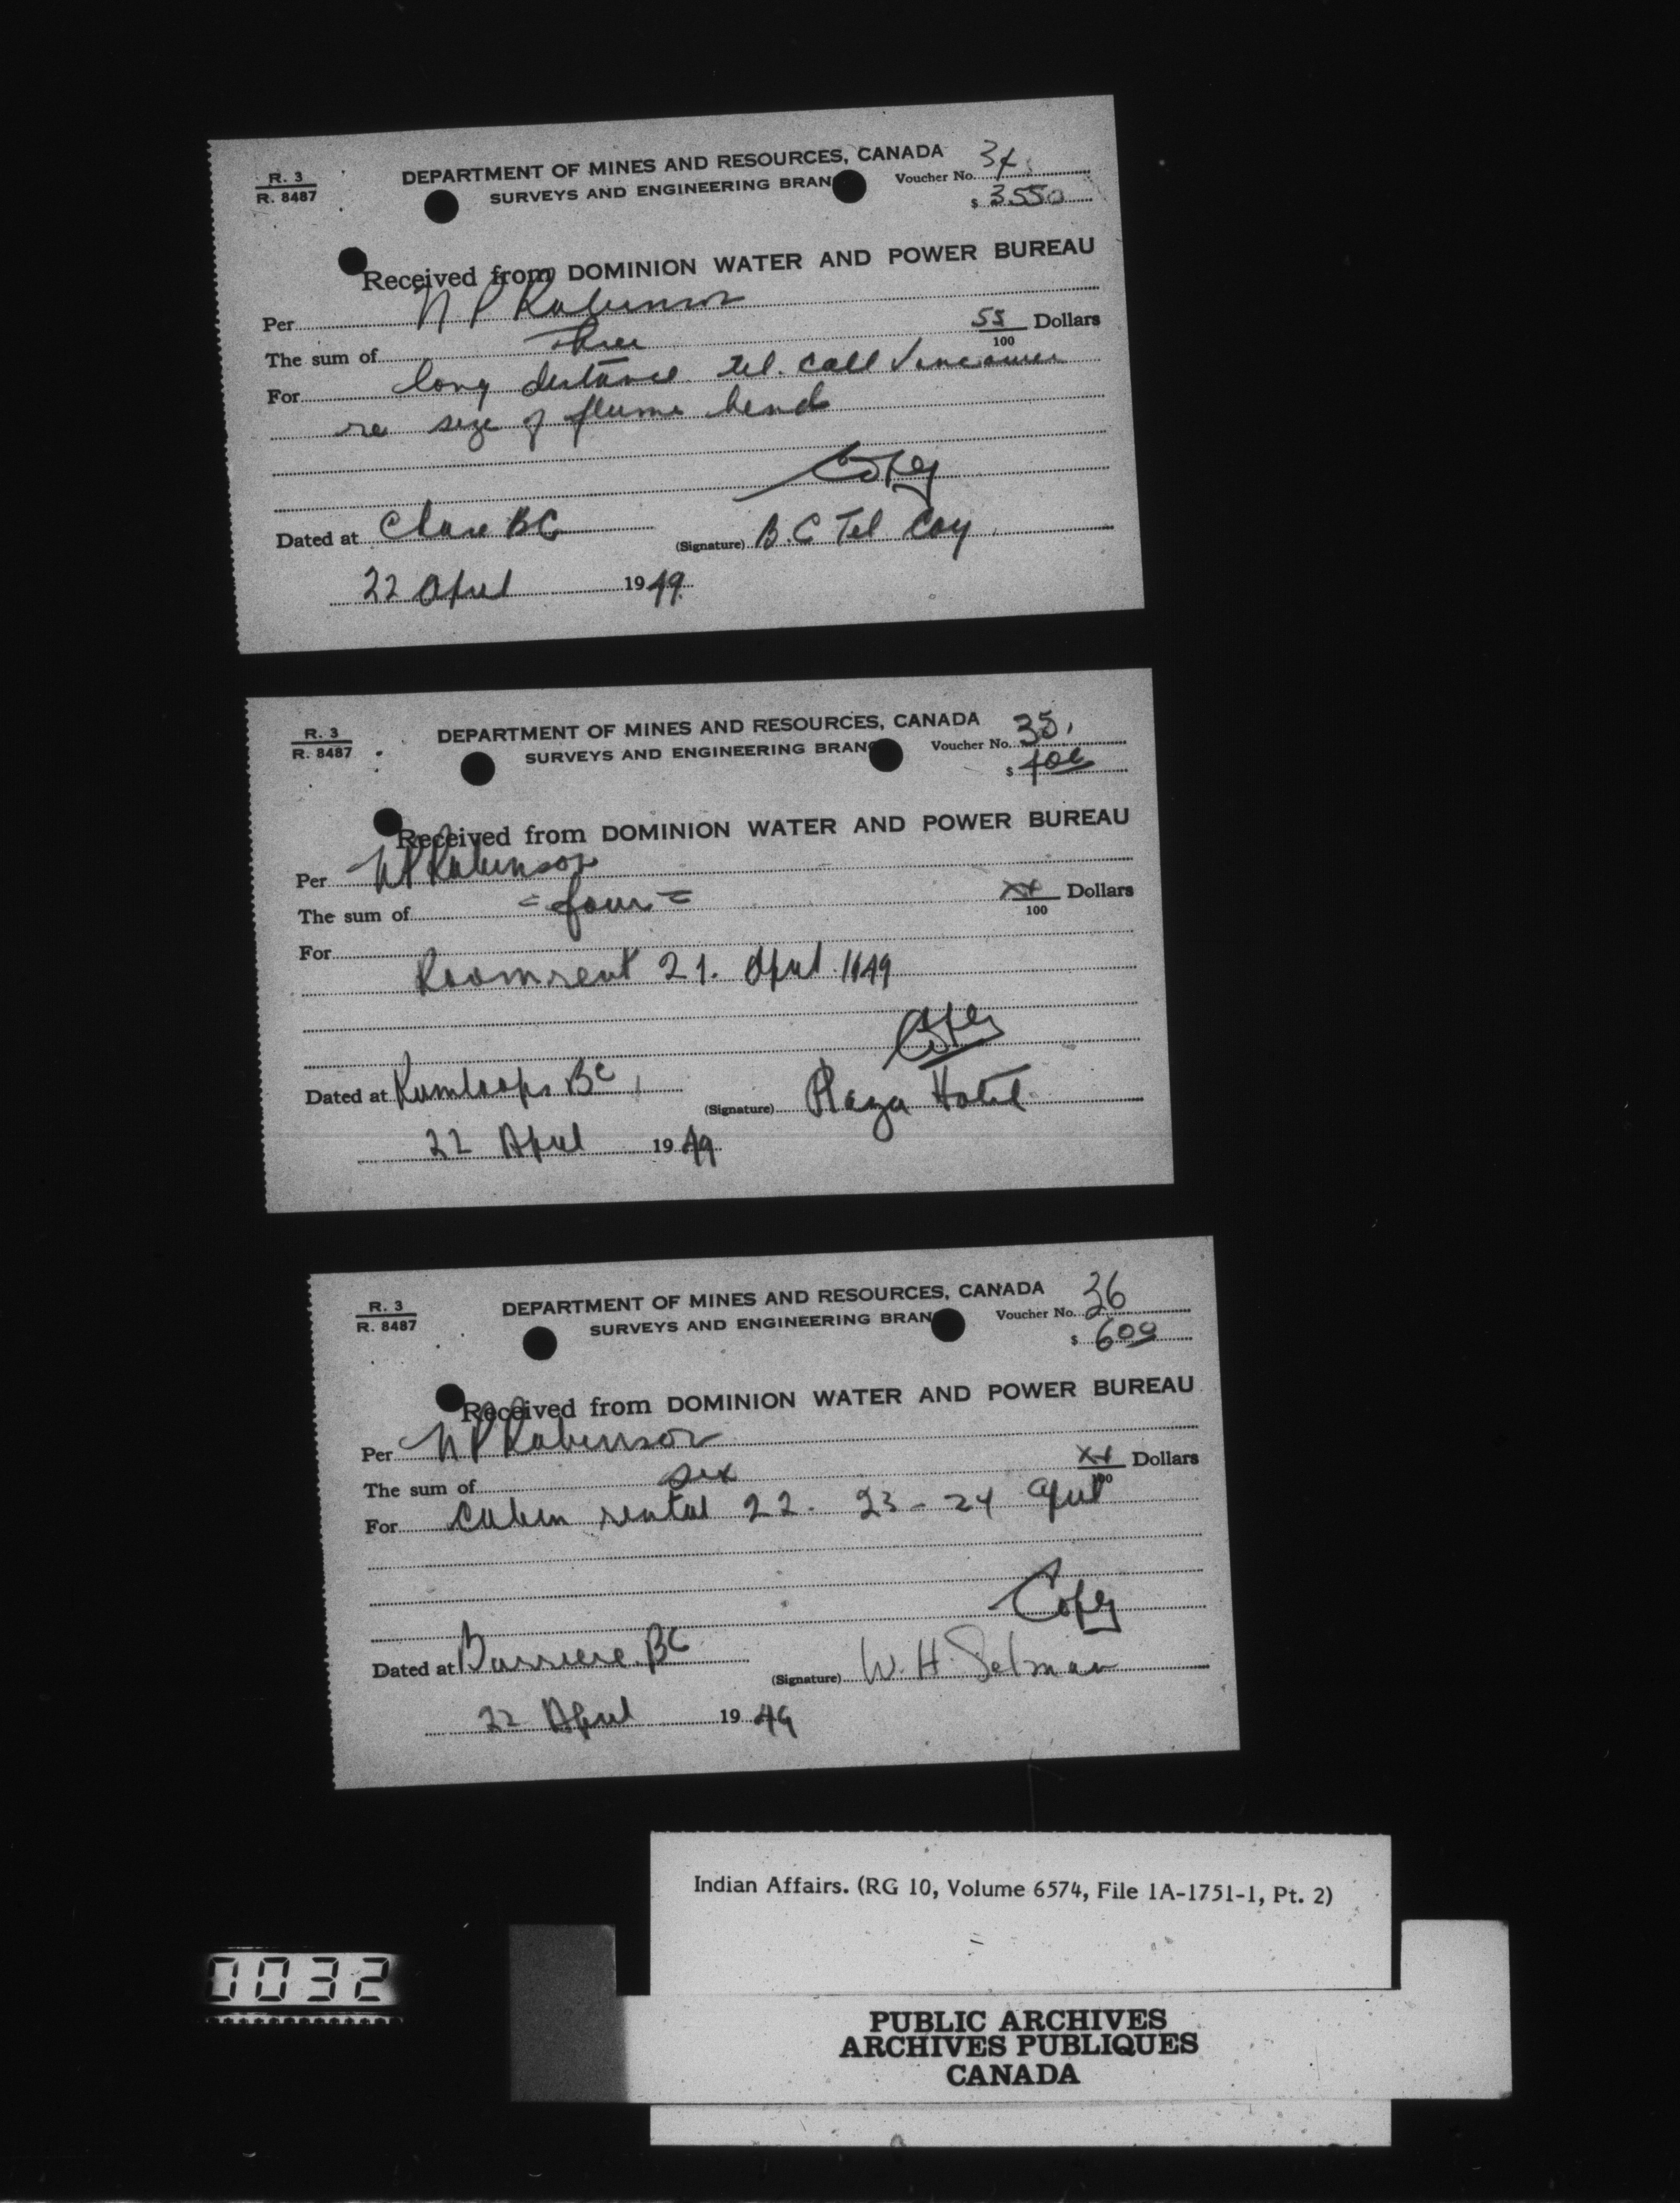 R. 3
R. 8487
DEPARTMENT OF MINES AND RESOURCES, CANADA
SURVEYS AND ENGINEERING BRAN
Voucher No. 34
$ 3.55
Received from DOMINION WATER AND POWER BUREAU
Per N P Robinson
The sum of Three 55/100 Dollars
For long distance tel. call Vancouver
re size of flume bend
Copy
Dated at Chase BC
(Signature) B.C Tel Coy
22 April 1949
R. 3
R. 8487
DEPARTMENT OF MINES AND RESOURCES, CANADA
SURVEYS AND ENGINEERING BRANC
Voucher No. 35
$ 400
Received from DOMINION WATER AND POWER BUREAU
Per N P Robinson
The sum of = four = xx/100 Dollars
For
Room rent 21. April 1949
Copy
Dated at Kamloops BC
(Signature) Plaza Hotel
22 April 1949
R. 3
R. 8487
DEPARTMENT OF MINES AND RESOURCES, CANADA
SURVEYS AND ENGINEERING BRAN
Voucher No. 36
$ 600
Received from DOMINION WATER AND POWER BUREAU
Per N P Robinson
The sum of six xx/100 Dollars
For Cabin rental 22 - 23 - 24 April
Copy
Dated at Barriere BC
(Signature) W. H. Selman
22 April 1949
Indian Affairs. (RG 10, Volume 6574, File 1A-1751-1, Pt. 2)
0032
PUBLIC ARCHIVES
ARCHIVES PUBLIQUES
CANADA